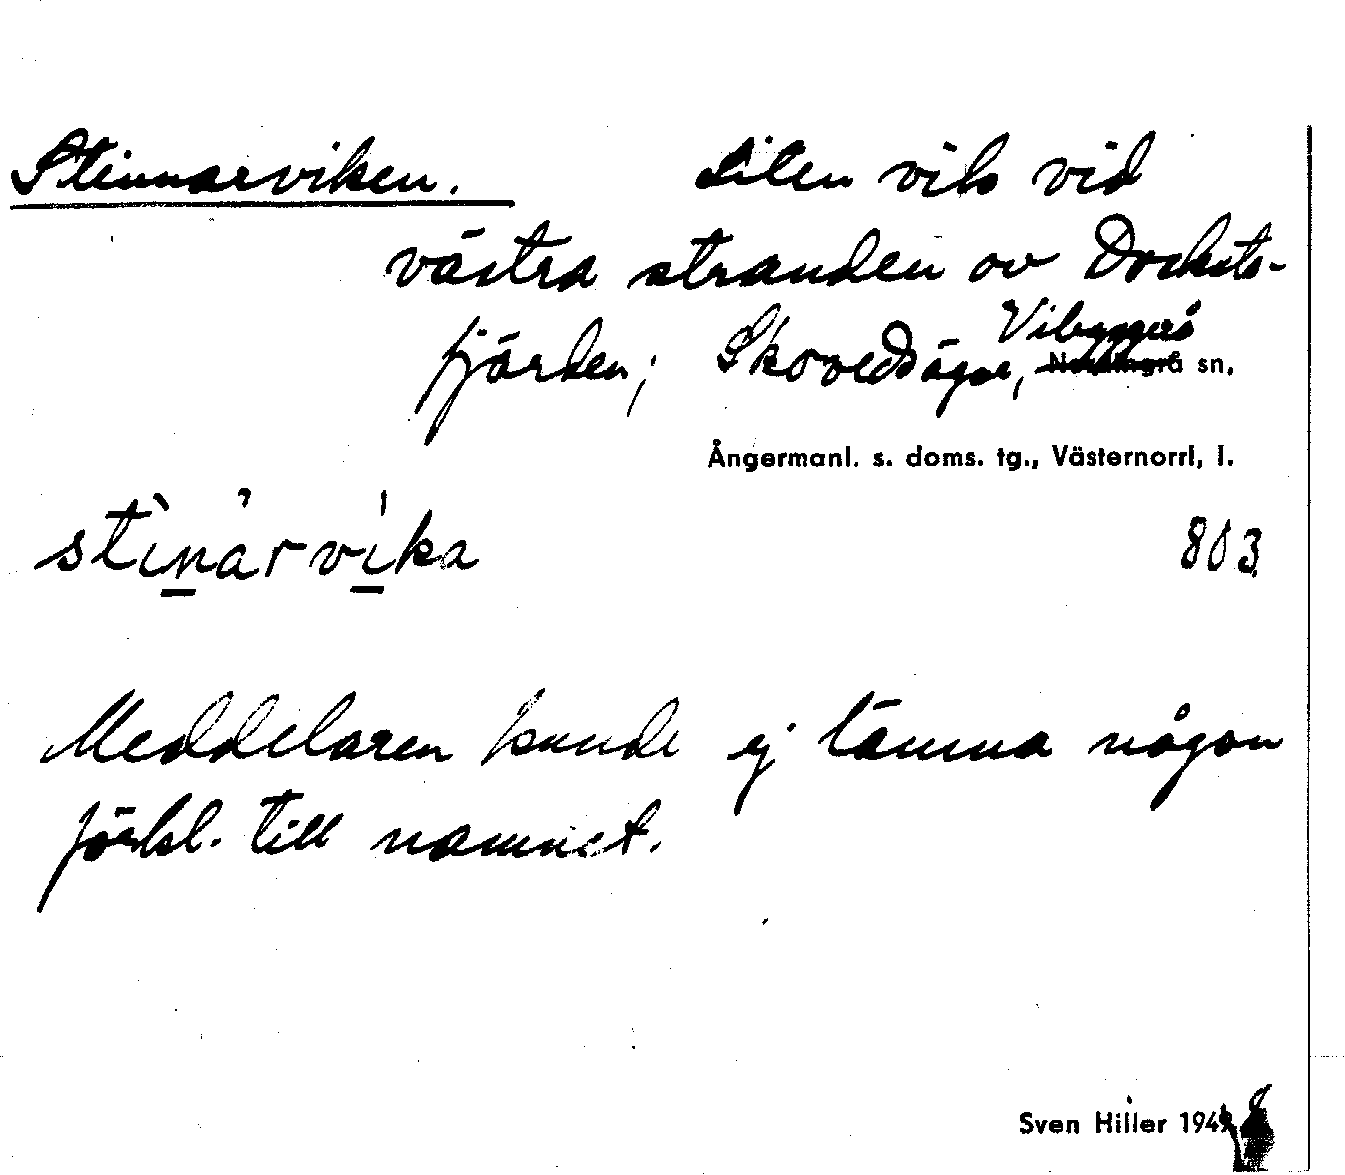 Stinnarviken. Liten vik vid
västra stranden av Docksta-
fjärden; Skovedsägor, Vibyggerå
Nordingrå sn,
Ångermanl. s. doms. tg., Västernorrl, l.
stìnàrvi̍ka 803
Meddelaren kunde ej lämna någon
förkl. till namnet.
Sven Hiller 1948